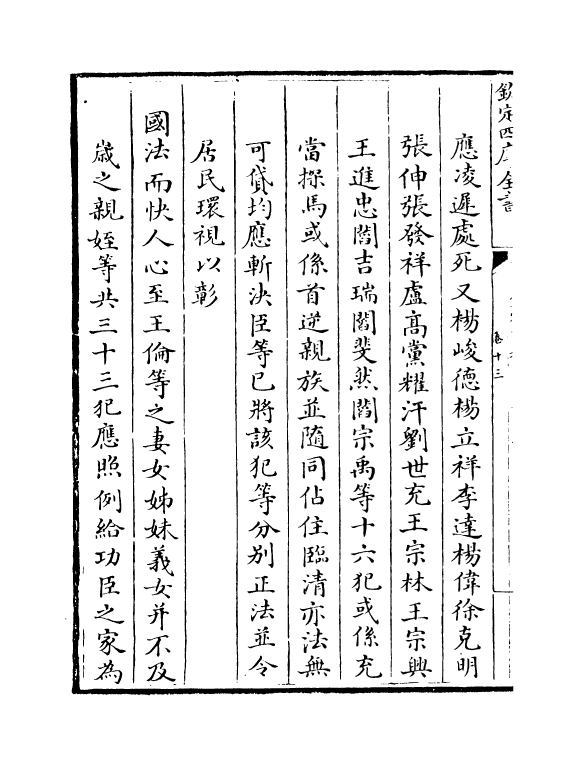 欽定四庫全書
卷十三
應凌遲處死又楊峻德楊立祥李達楊偉徐克明
張伸張發祥盧高黨耀汗劉世充王宗林王宗興
王進忠閻吉瑞閻斐然閻宗禹等十六犯或係充
當探馬或係首逆親族並隨同佔住臨清亦法無
可貸均應斬決臣等已將該犯等分别正法並令
居民環視以彰
國法而快人心至王倫等之妻女姊妹義女并不及
歲之親姪等共三十三犯應照例給功臣之家為